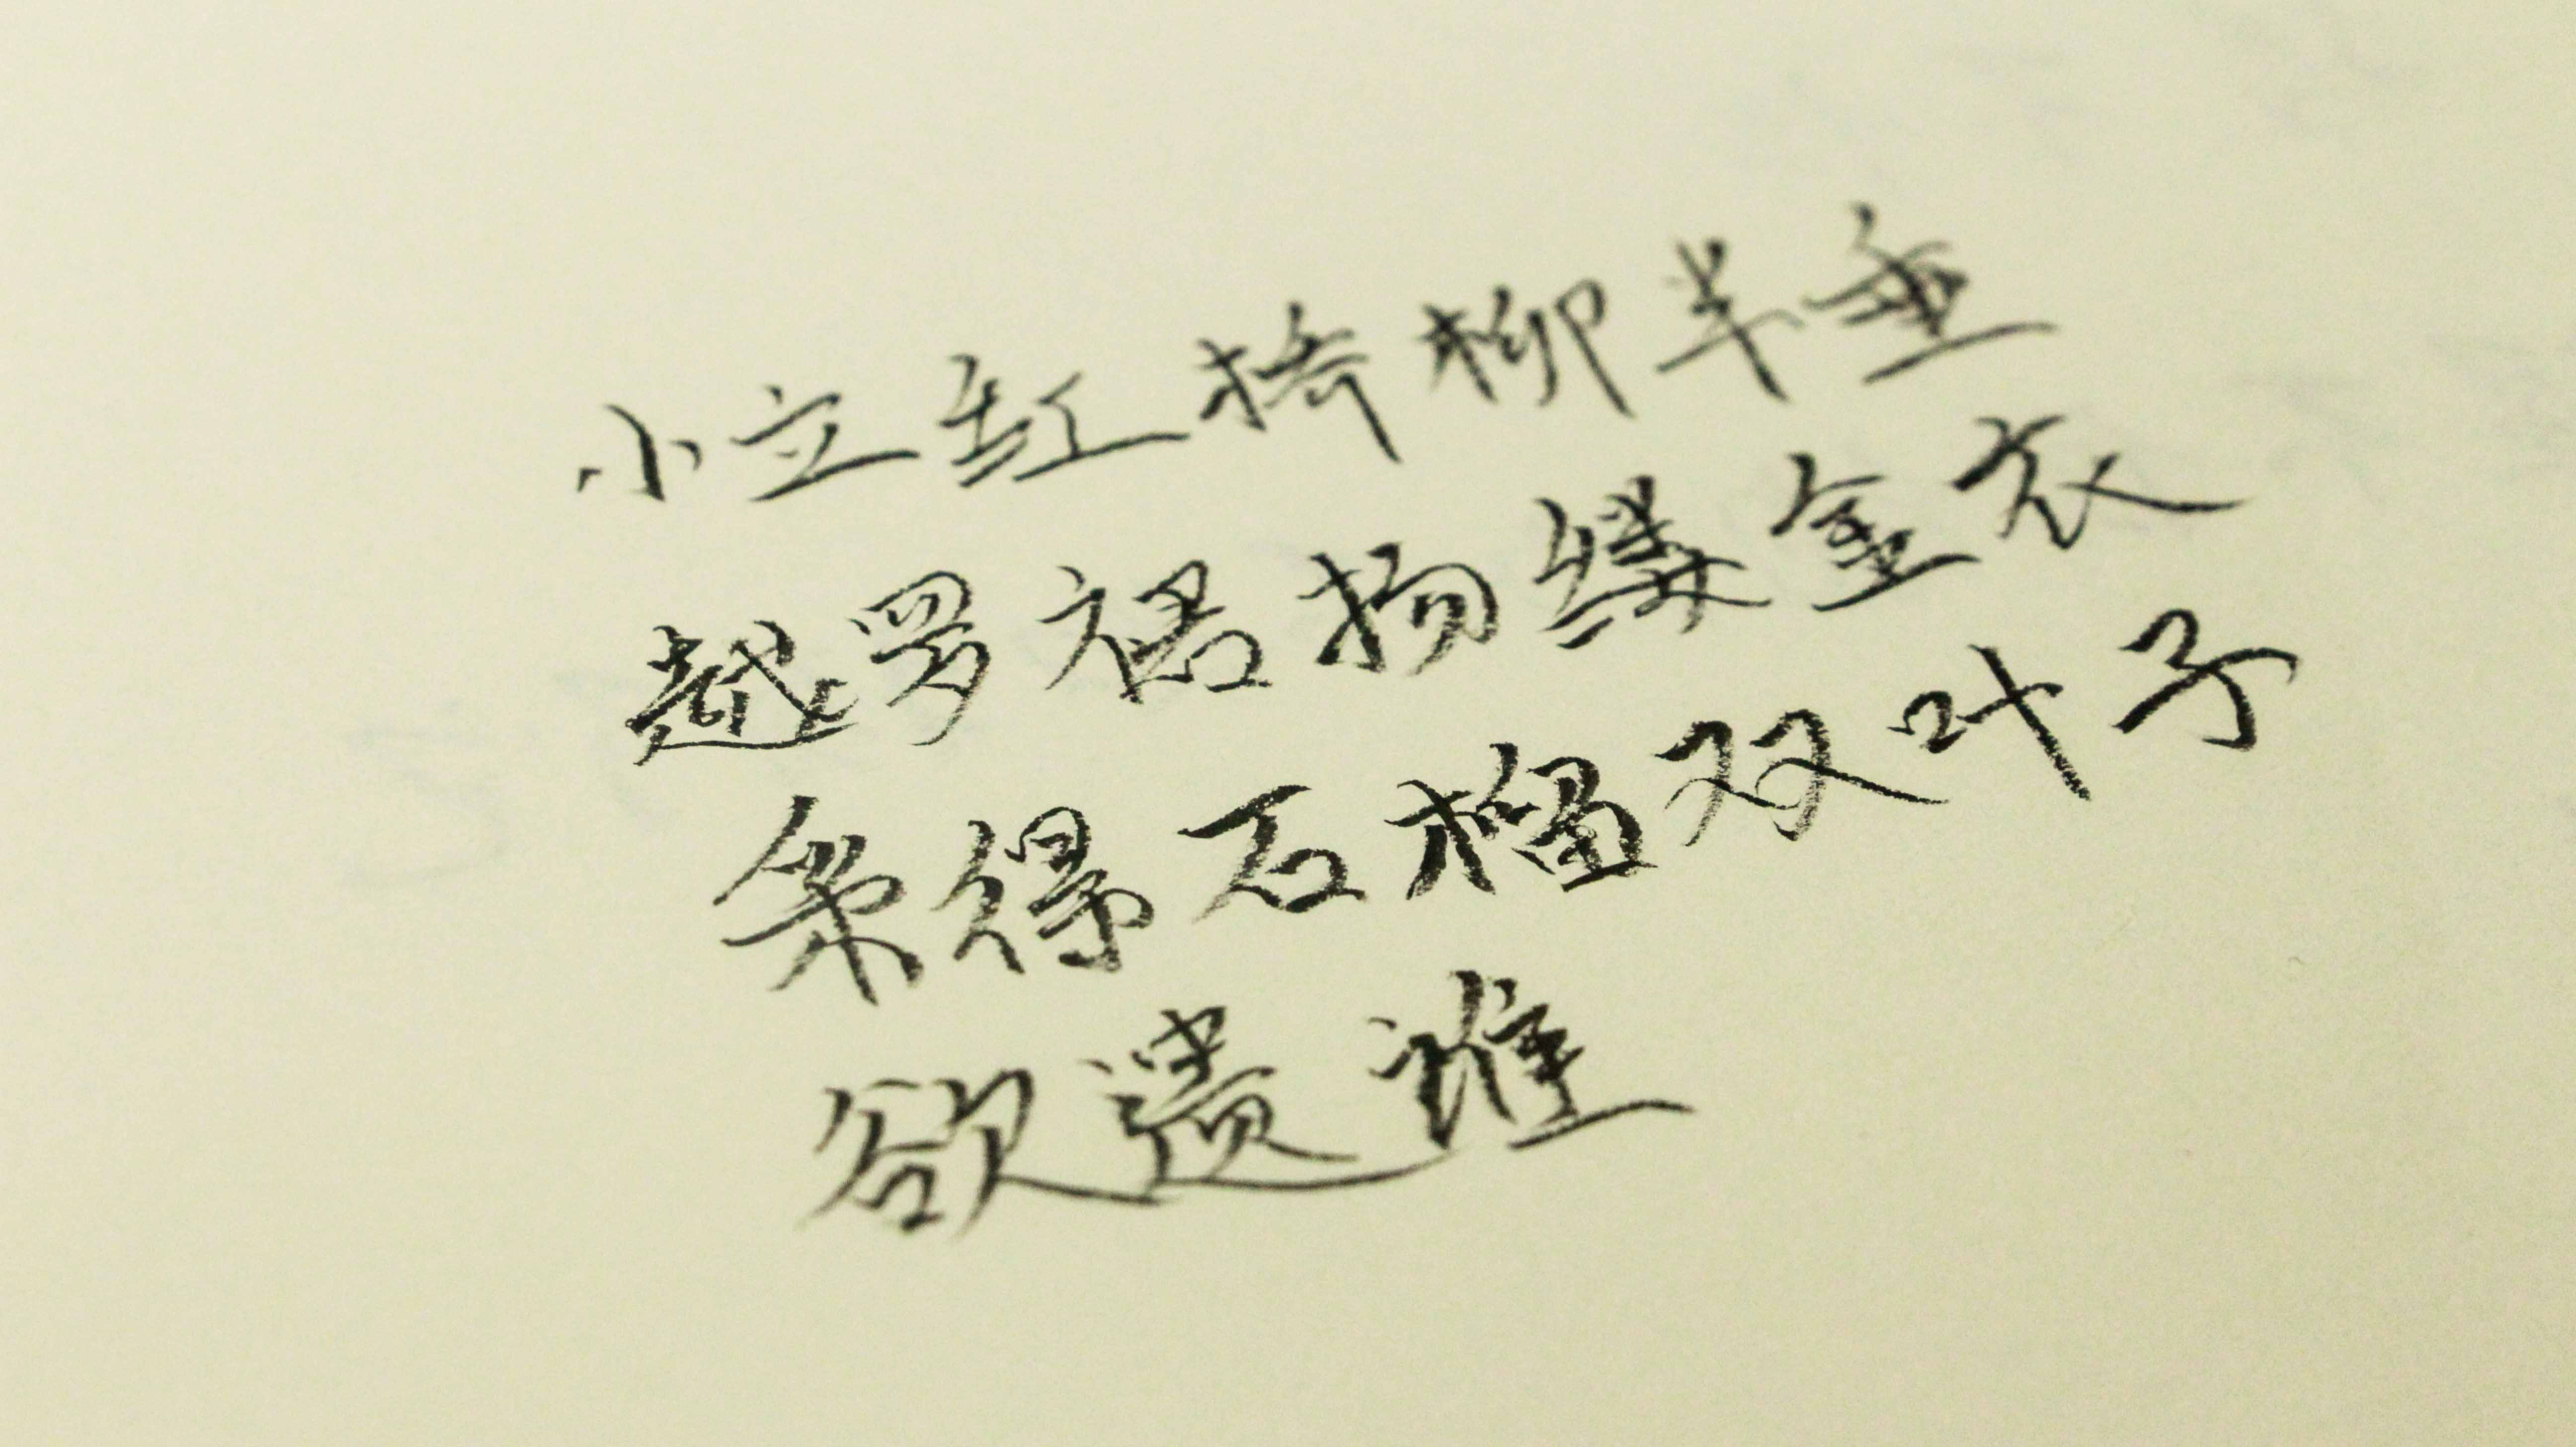 小立红桥柳半垂
越罗裙扬缕金衣
采得石榴双叶子
欲遗谁